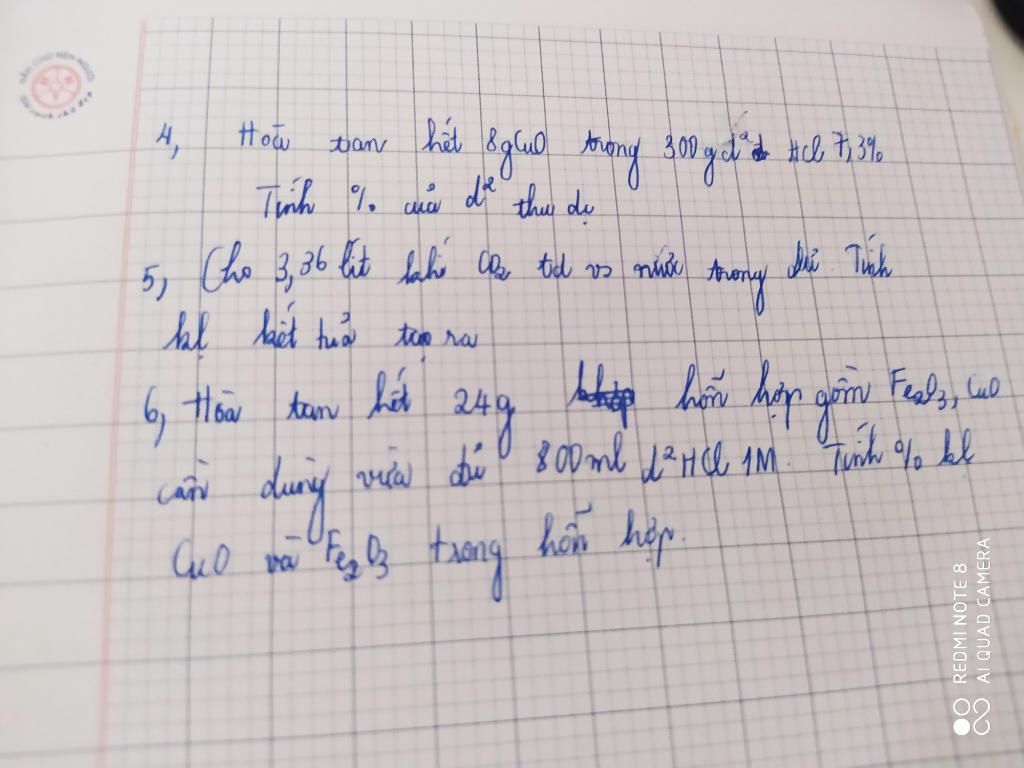 4, Hoà tan hết 8gCuO trong 300g d² HCl 7,3%
Tính % của d² thu dc
5, Cho 3,36 lít khí CO2 td vs nước trong dư. Tính
kl kết tủa tạo ra
6, Hòa tan hết 24g hỗn hợp gồm Fe2O3, CuO
cần dùng vừa đủ 800ml d² HCl 1M. Tính % kl
CuO và Fe2O3 trong hỗn hợp.
REDMI NOTE 8
AI QUAD CAMERA